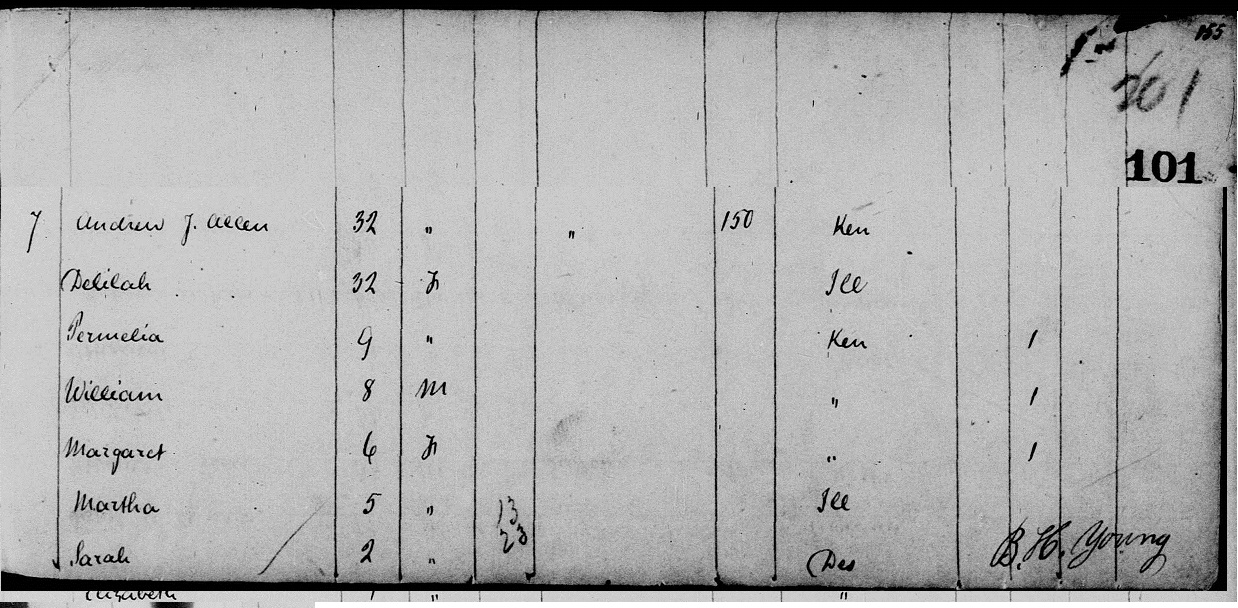 155
201
101
7 Andrew J. Allen 32 " " 150 Ken
Delilah 32 F Ill
Permelia 9 " Ken 1
William 8 M " 1
Margaret 6 F " 1
Martha 5 " 13 Ill
Sarah 2 " 23 Des B. H. Young
Elizabeth 1 " "